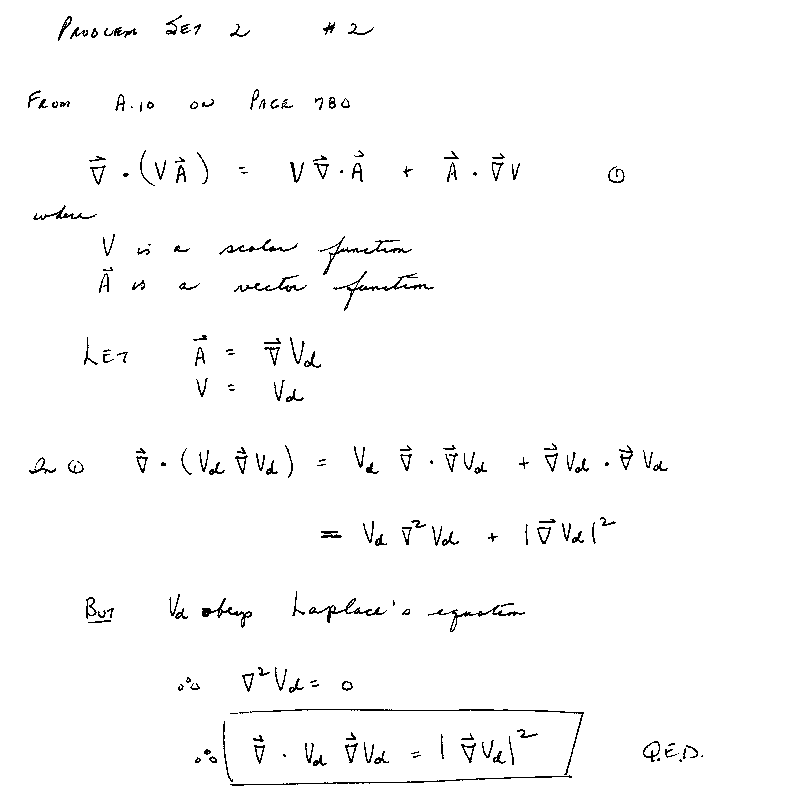 PROBLEM SET 2 #2
FROM A.10 ON PAGE 780
∇⃗ · (V A⃗) = V ∇⃗ · A⃗ + A⃗ · ∇⃗ V ①
where
V is a scalar function
A⃗ is a vector function
LET A⃗ = ∇⃗ V_d
V = V_d
In ① ∇⃗ · (V_d ∇⃗ V_d) = V_d ∇⃗ · ∇⃗ V_d + ∇⃗ V_d · ∇⃗ V_d
= V_d ∇² V_d + |∇⃗ V_d|²
BUT V_d obeys Laplace's equation
∴ ∇² V_d = 0
∴ ∇⃗ · V_d ∇⃗ V_d = |∇⃗ V_d|² Q.E.D.